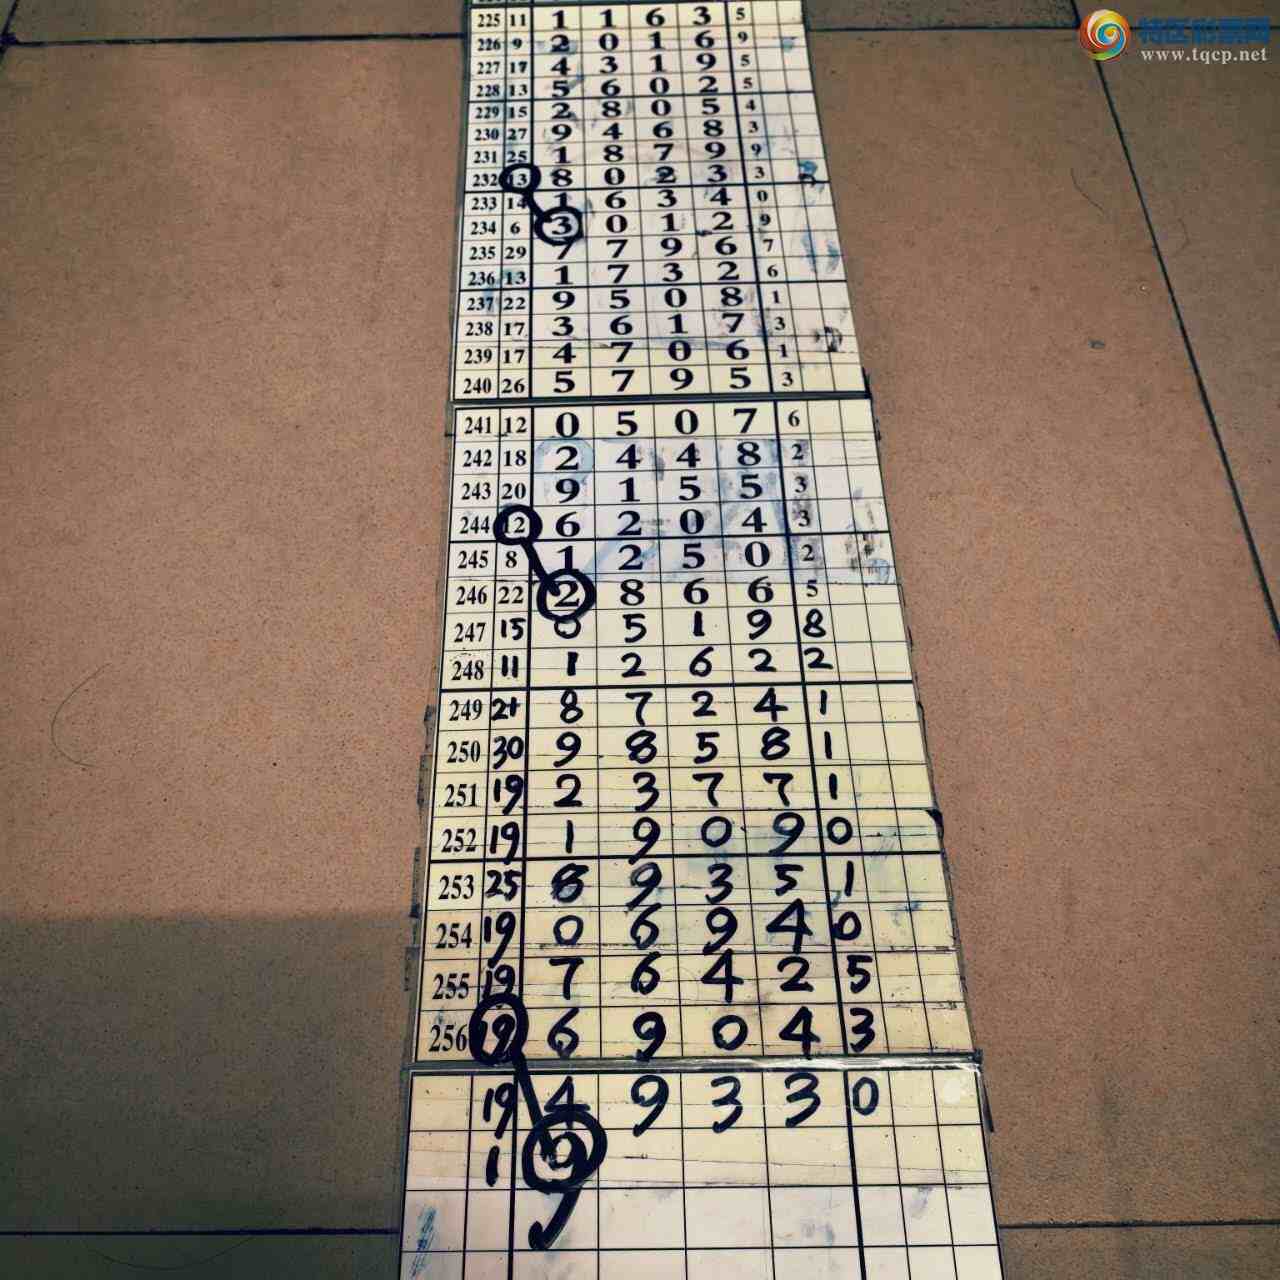 特区彩票网
www.tqcp.net
225 11 1 1 6 3 5
226 9 2 0 1 6 9
227 17 4 3 1 9 5
228 13 5 6 0 2 5
229 15 2 8 0 5 4
230 27 9 4 6 8 3
231 25 1 8 7 9 9
232 13 8 0 2 3 3
233 14 1 6 3 4 0
234 6 3 0 1 2 9
235 29 7 7 9 6 7
236 13 1 7 3 2 6
237 22 9 5 0 8 1
238 17 3 6 1 7 3
239 17 4 7 0 6 1
240 26 5 7 9 5 3
241 12 0 5 0 7 6
242 18 2 4 4 8 2
243 20 9 1 5 5 3
244 12 6 2 0 4 3
245 8 1 2 5 0 2
246 22 2 8 6 6 5
247 15 0 5 1 9 8
248 11 1 2 6 2 2
249 21 8 7 2 4 1
250 30 9 8 5 8 1
251 19 2 3 7 7 1
252 19 1 9 0 9 0
253 25 8 9 3 5 1
254 19 0 6 9 4 0
255 19 7 6 4 2 5
256 19 6 9 0 4 3
19 4 9 3 3 0
1 9